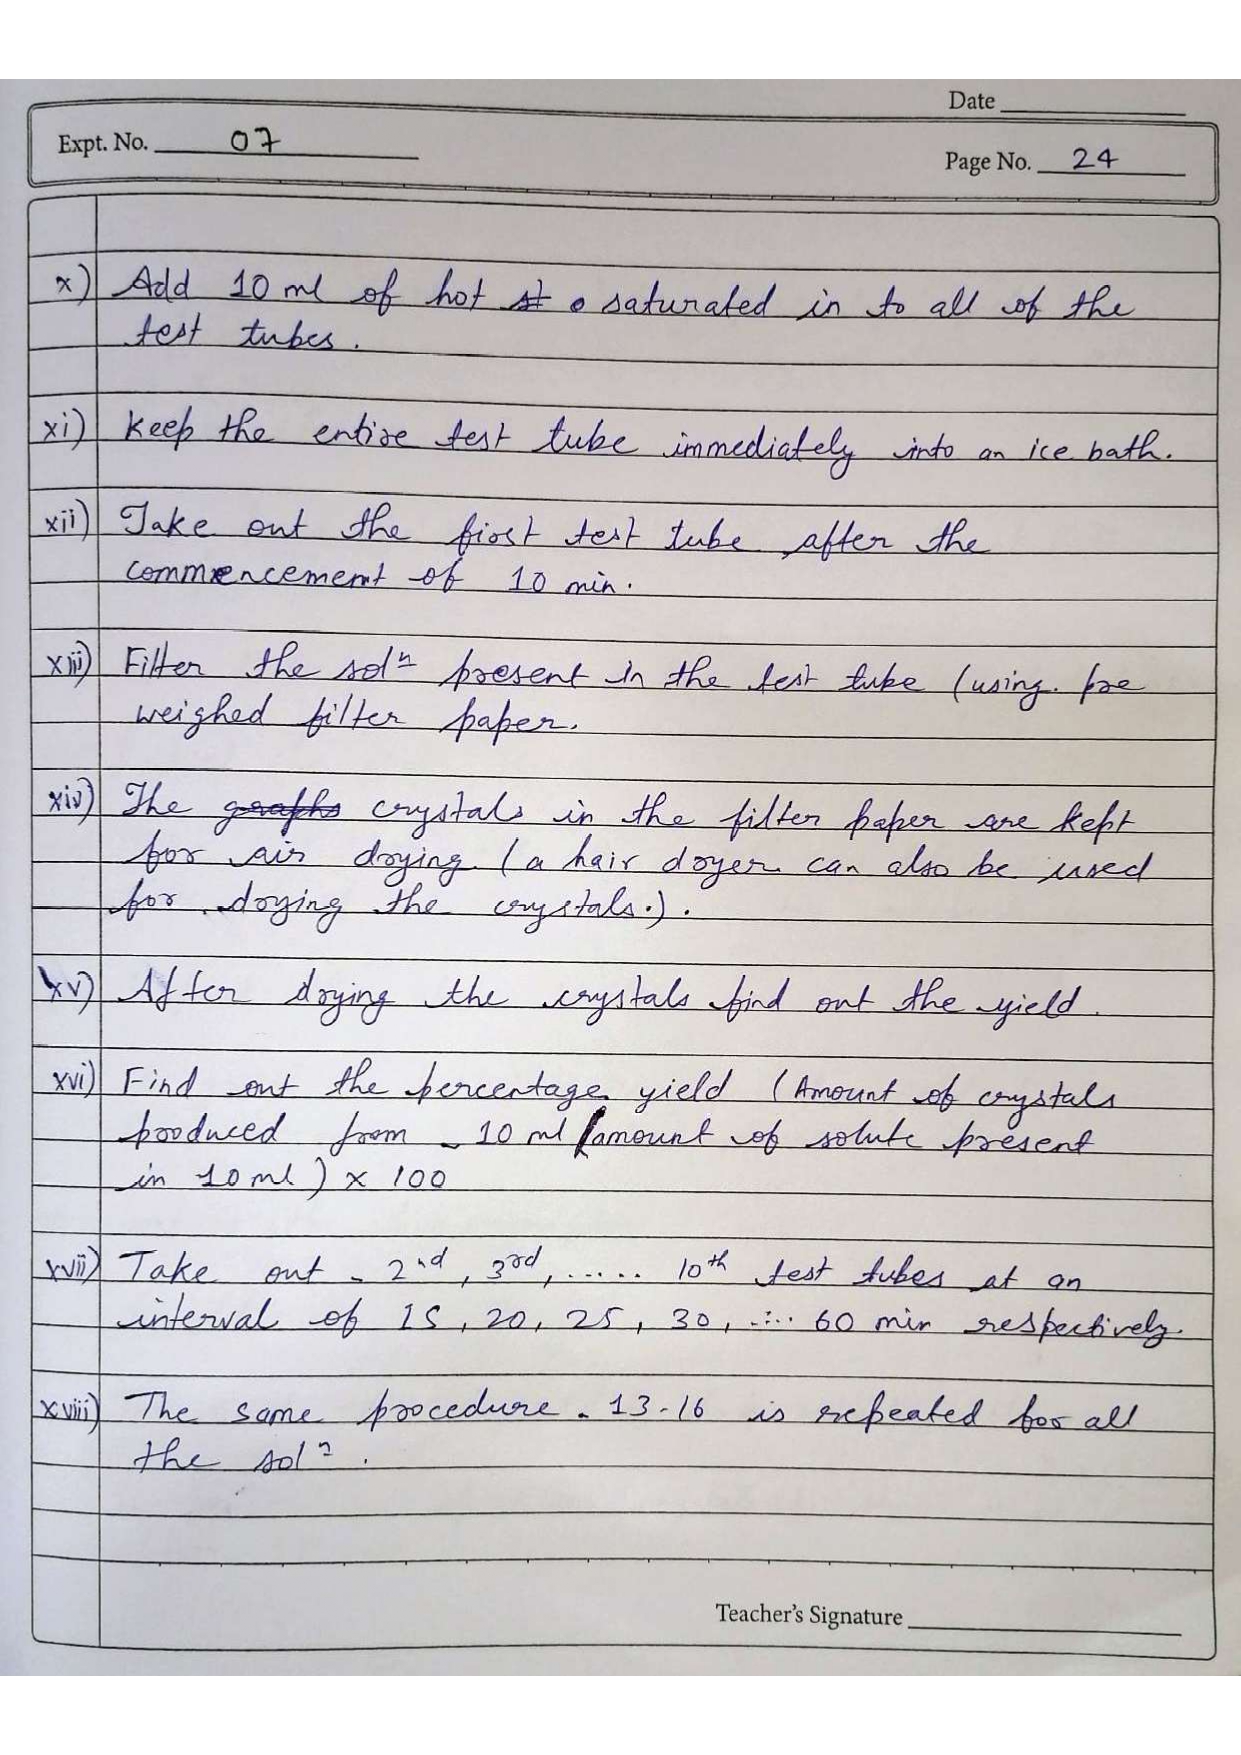 Date
Expt. No. 07
Page No. 24
x) Add 10 ml of hot saturated in to all of the
test tubes.
xi) Keep the entire test tube immediately into an ice bath.
xii) Take out the first test tube after the
commencement of 10 min.
xiii) Filter the solⁿ present in the test tube (using pre
weighed filter paper.
xiv) The graphs crystals in the filter paper are kept
for air drying (a hair dryer can also be used
for drying the crystals.).
xv) After drying the crystals find out the yield.
xvi) Find out the percentage yield (Amount of crystals
produced from 10 ml / amount of solute present
in 10 ml) x 100
xvii) Take out 2nd, 3rd, ..... 10th test tubes at an
interval of 15, 20, 25, 30, .... 60 min respectively.
xviii) The same procedure 13-16 is repeated for all
the solⁿ.
Teacher's Signature